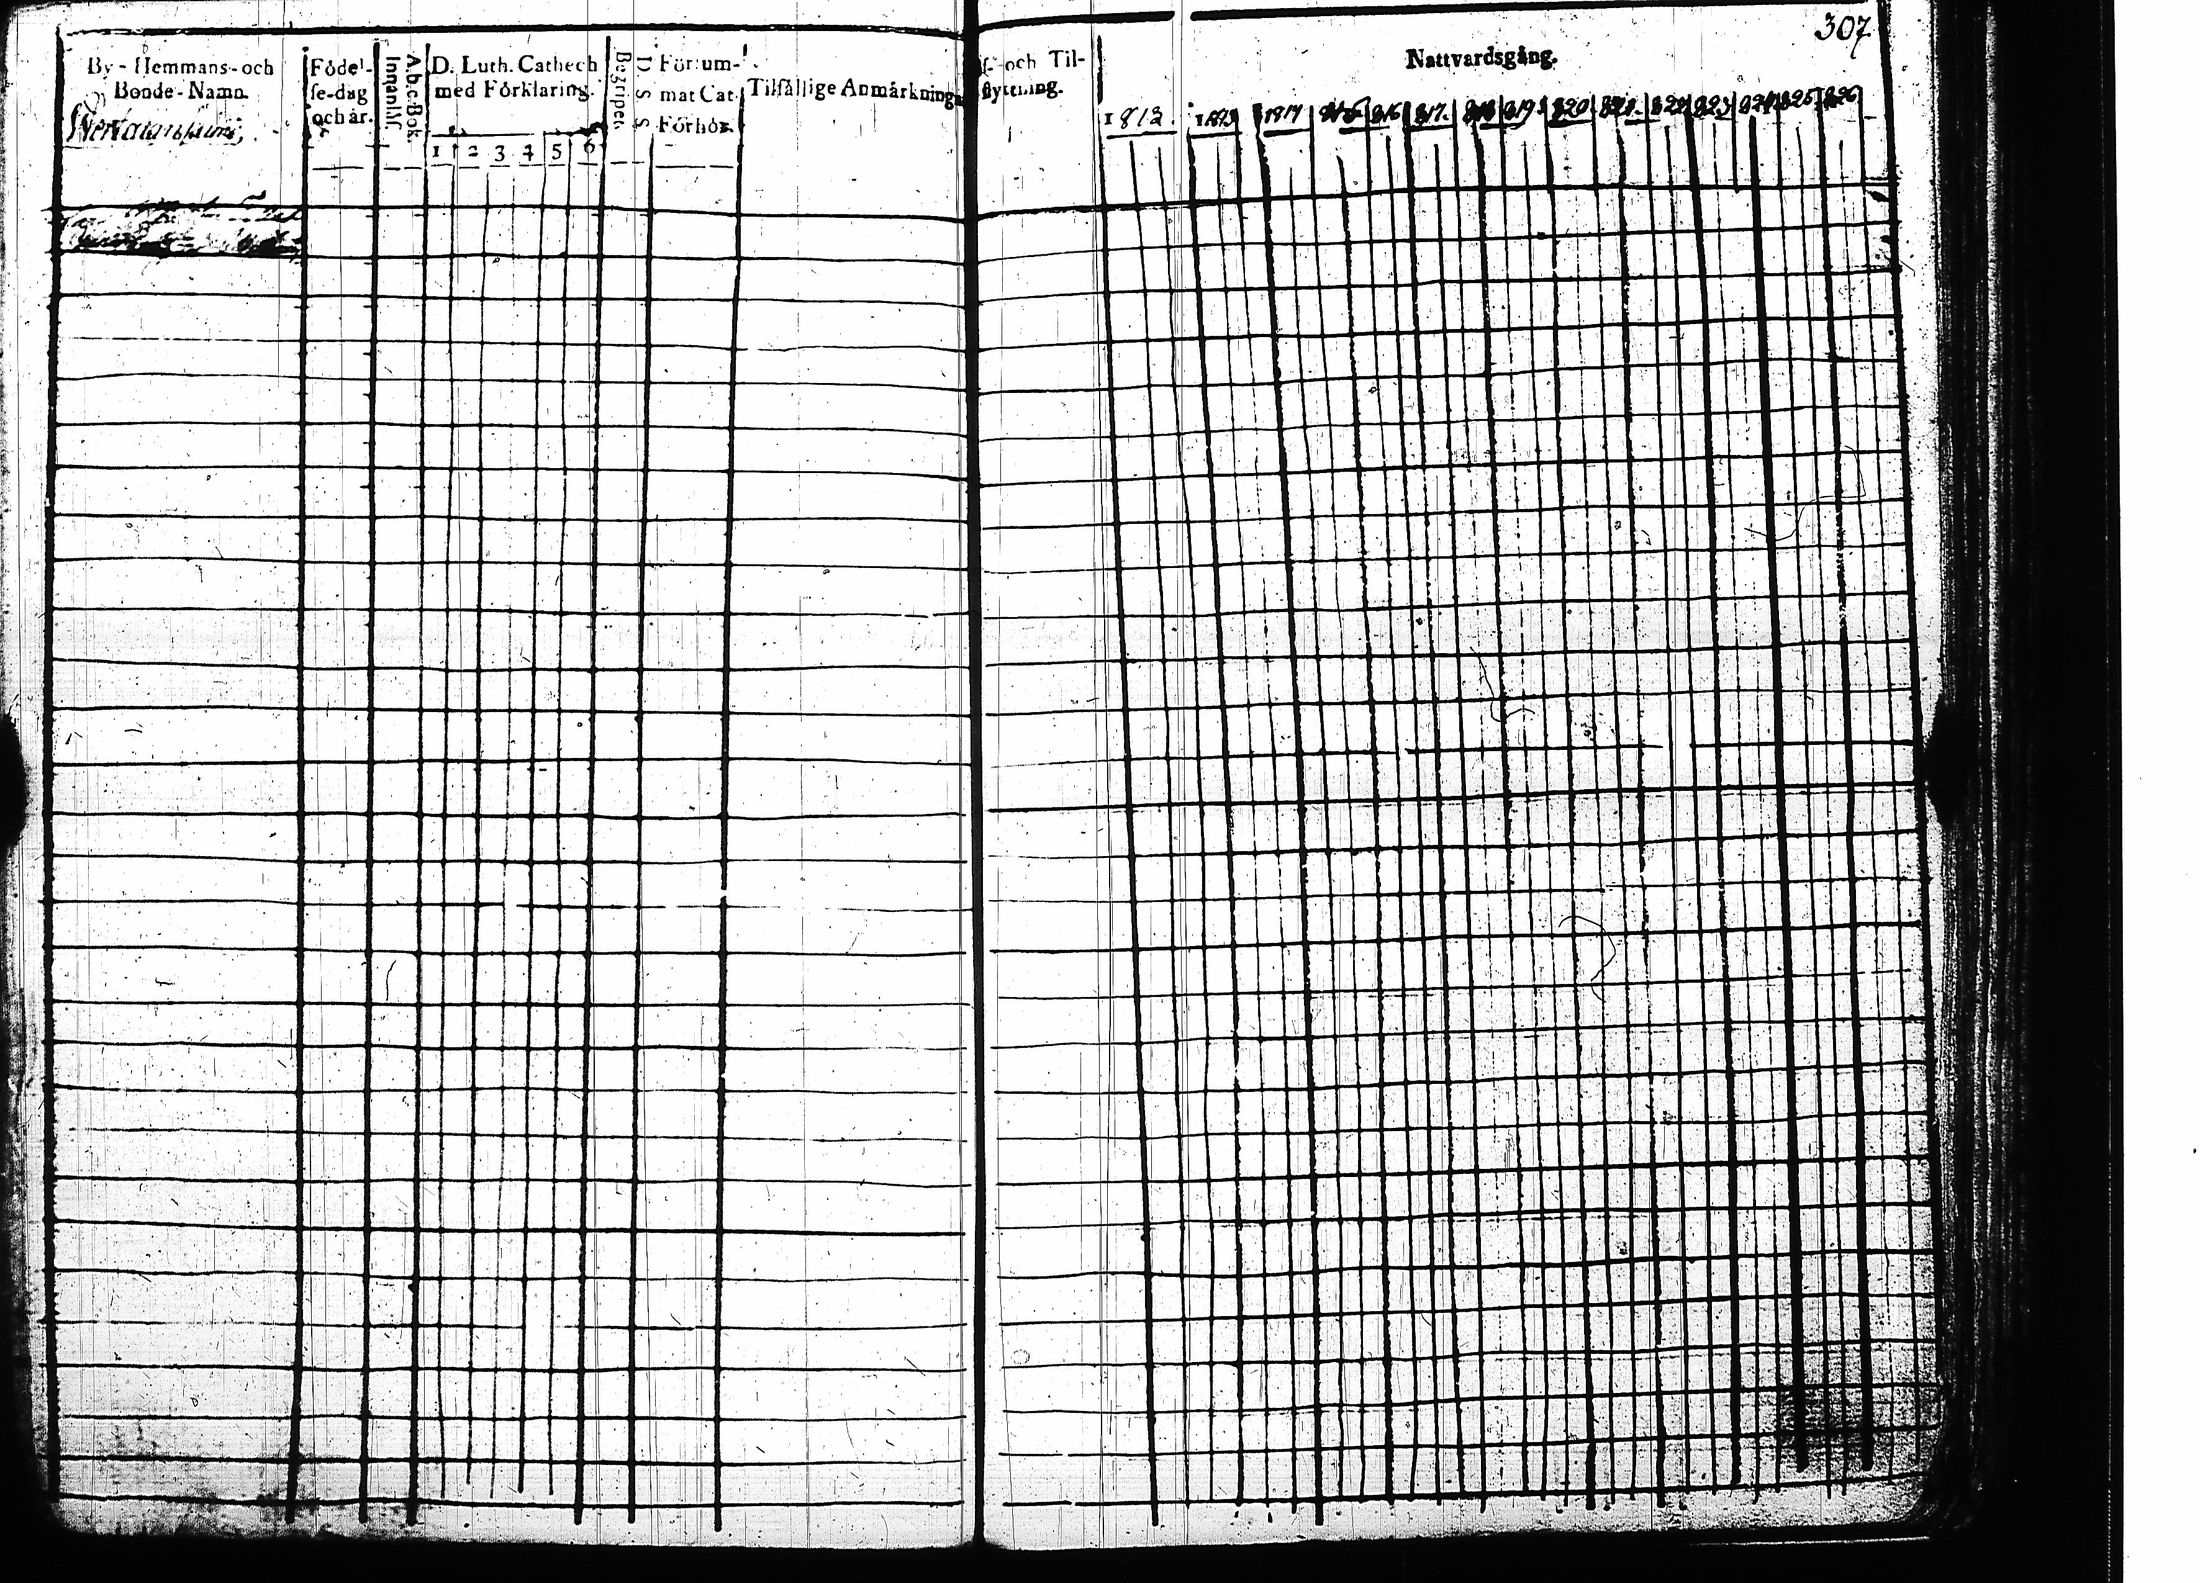 307
By-Hemmans-och
Bonde-Namn.
Födel-
se-dag
och år.
A.b.c.Bok.
Innanläs.
D. Luth. Cathech
med Förklaring.
1 2 3 4 5 6
Begriper.
D. S. S.
Försum-
mat Cat.
Förhör.
Tilfällige Anmärkning
och Til-
flyttning.
Nattvardsgång.
1812. 1813 1814 815 816 817. 818 819 820 821. 822 823 824 825 826